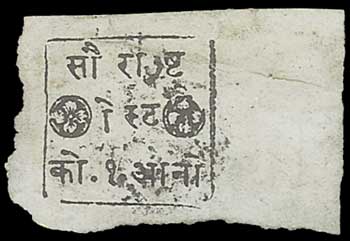 सौ राष्ट
पोस्ट
को. १ आनो